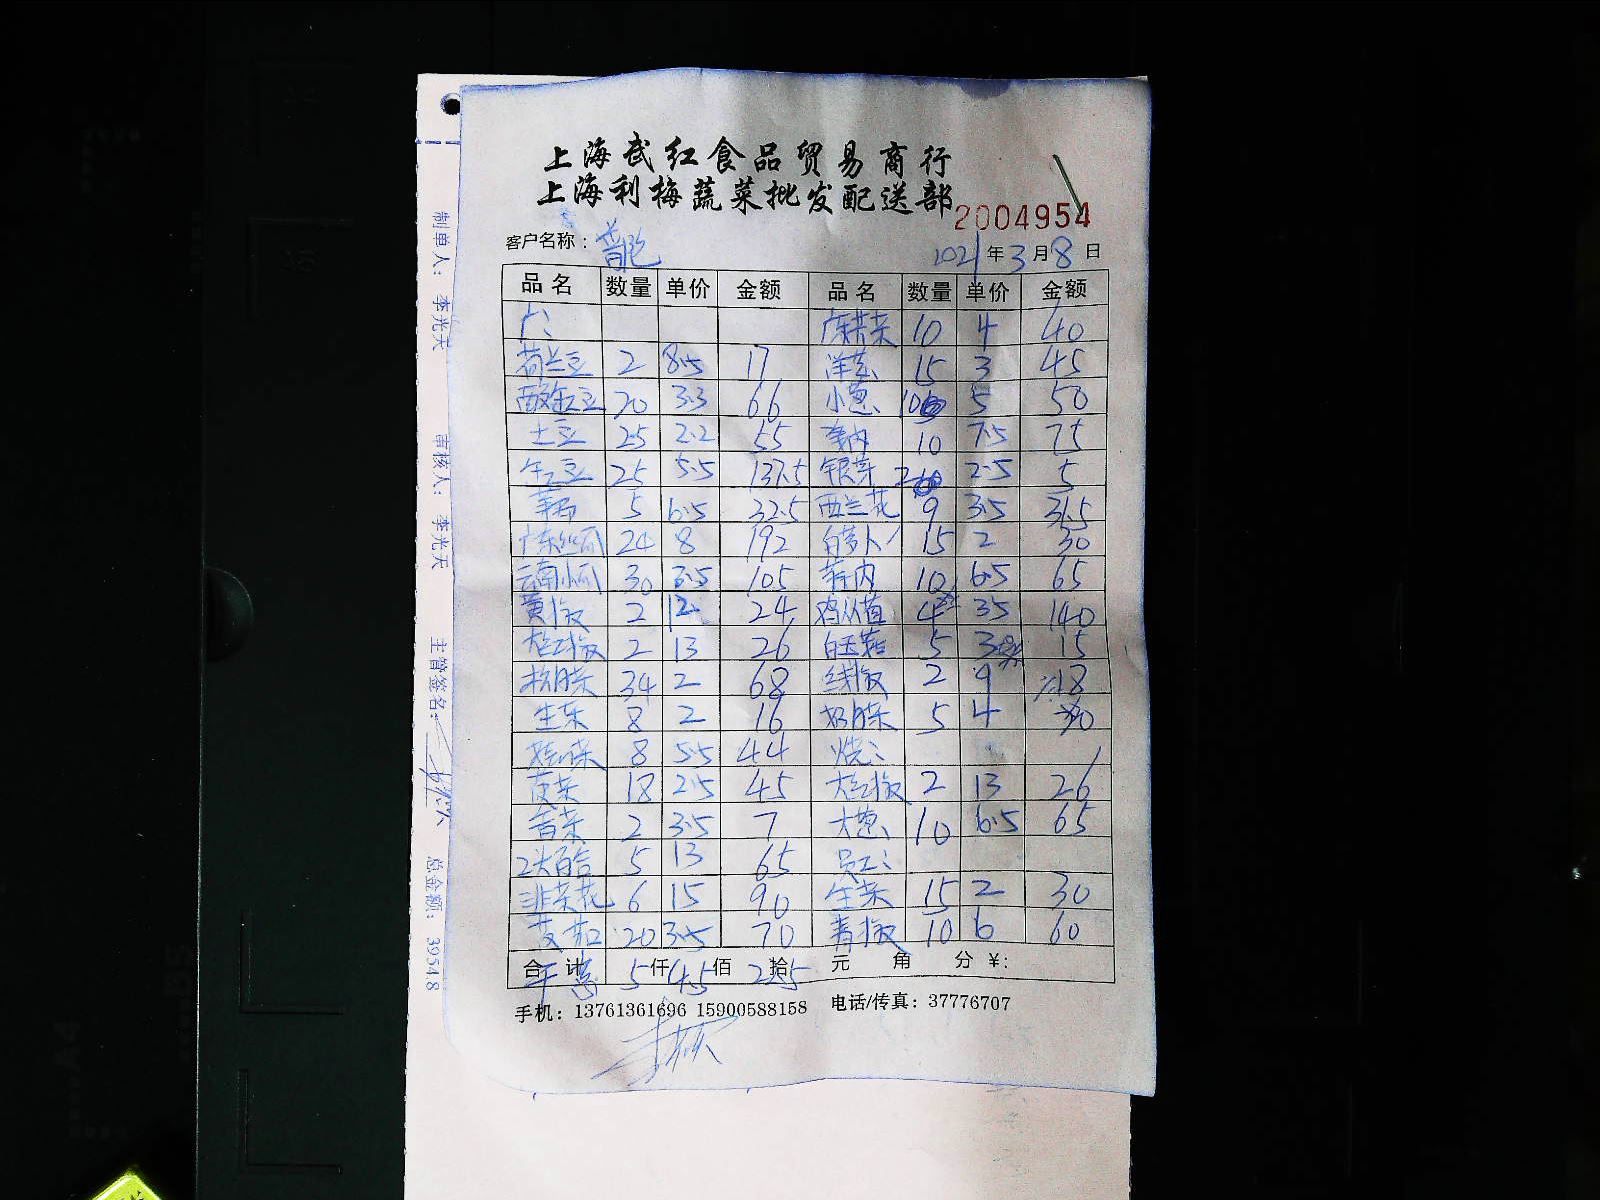 上海武红食品贸易商行
上海利梅蔬菜批发配送部
2004954
客户名称：
2021年3月8日
品名 数量 单价 金额 品名 数量 单价 金额
10 4 40
荷兰豆 2 8.5 17 洋葱 15 3 45
20 3.3 66 小葱 10 5 50
土豆 25 2.2 55 10 7.5 75
25 5.5 137.5 银芽 2 2.5 5
5 6.5 32.5 西兰花 9 3.5 31.5
广东丝瓜 24 8 192 白萝卜 15 2 30
云南小瓜 30 3.5 105 10 6.5 65
黄椒 2 12 24 4 35 140
大红椒 2 13 26 白玉菇 5 3 15
34 2 68 线椒 2 9 18
生菜 8 2 16 5 4
娃娃菜 8 5.5 44
18 2.5 45 大红椒 2 13 26
2 3.5 7 大葱 10 6.5 65
百合 5 13 65 员工：
韭菜花 6 15 90 生菜 15 2 30
20 3.5 70 青椒 10 6 60
合计 仟 佰 拾 元 角 分 ¥：
5 4.5 22.5
手机：13761361696 15900588158 电话/传真：37776707
制单人： 李光天
审核人： 李光天
主管签名：
总金额： 3954.8